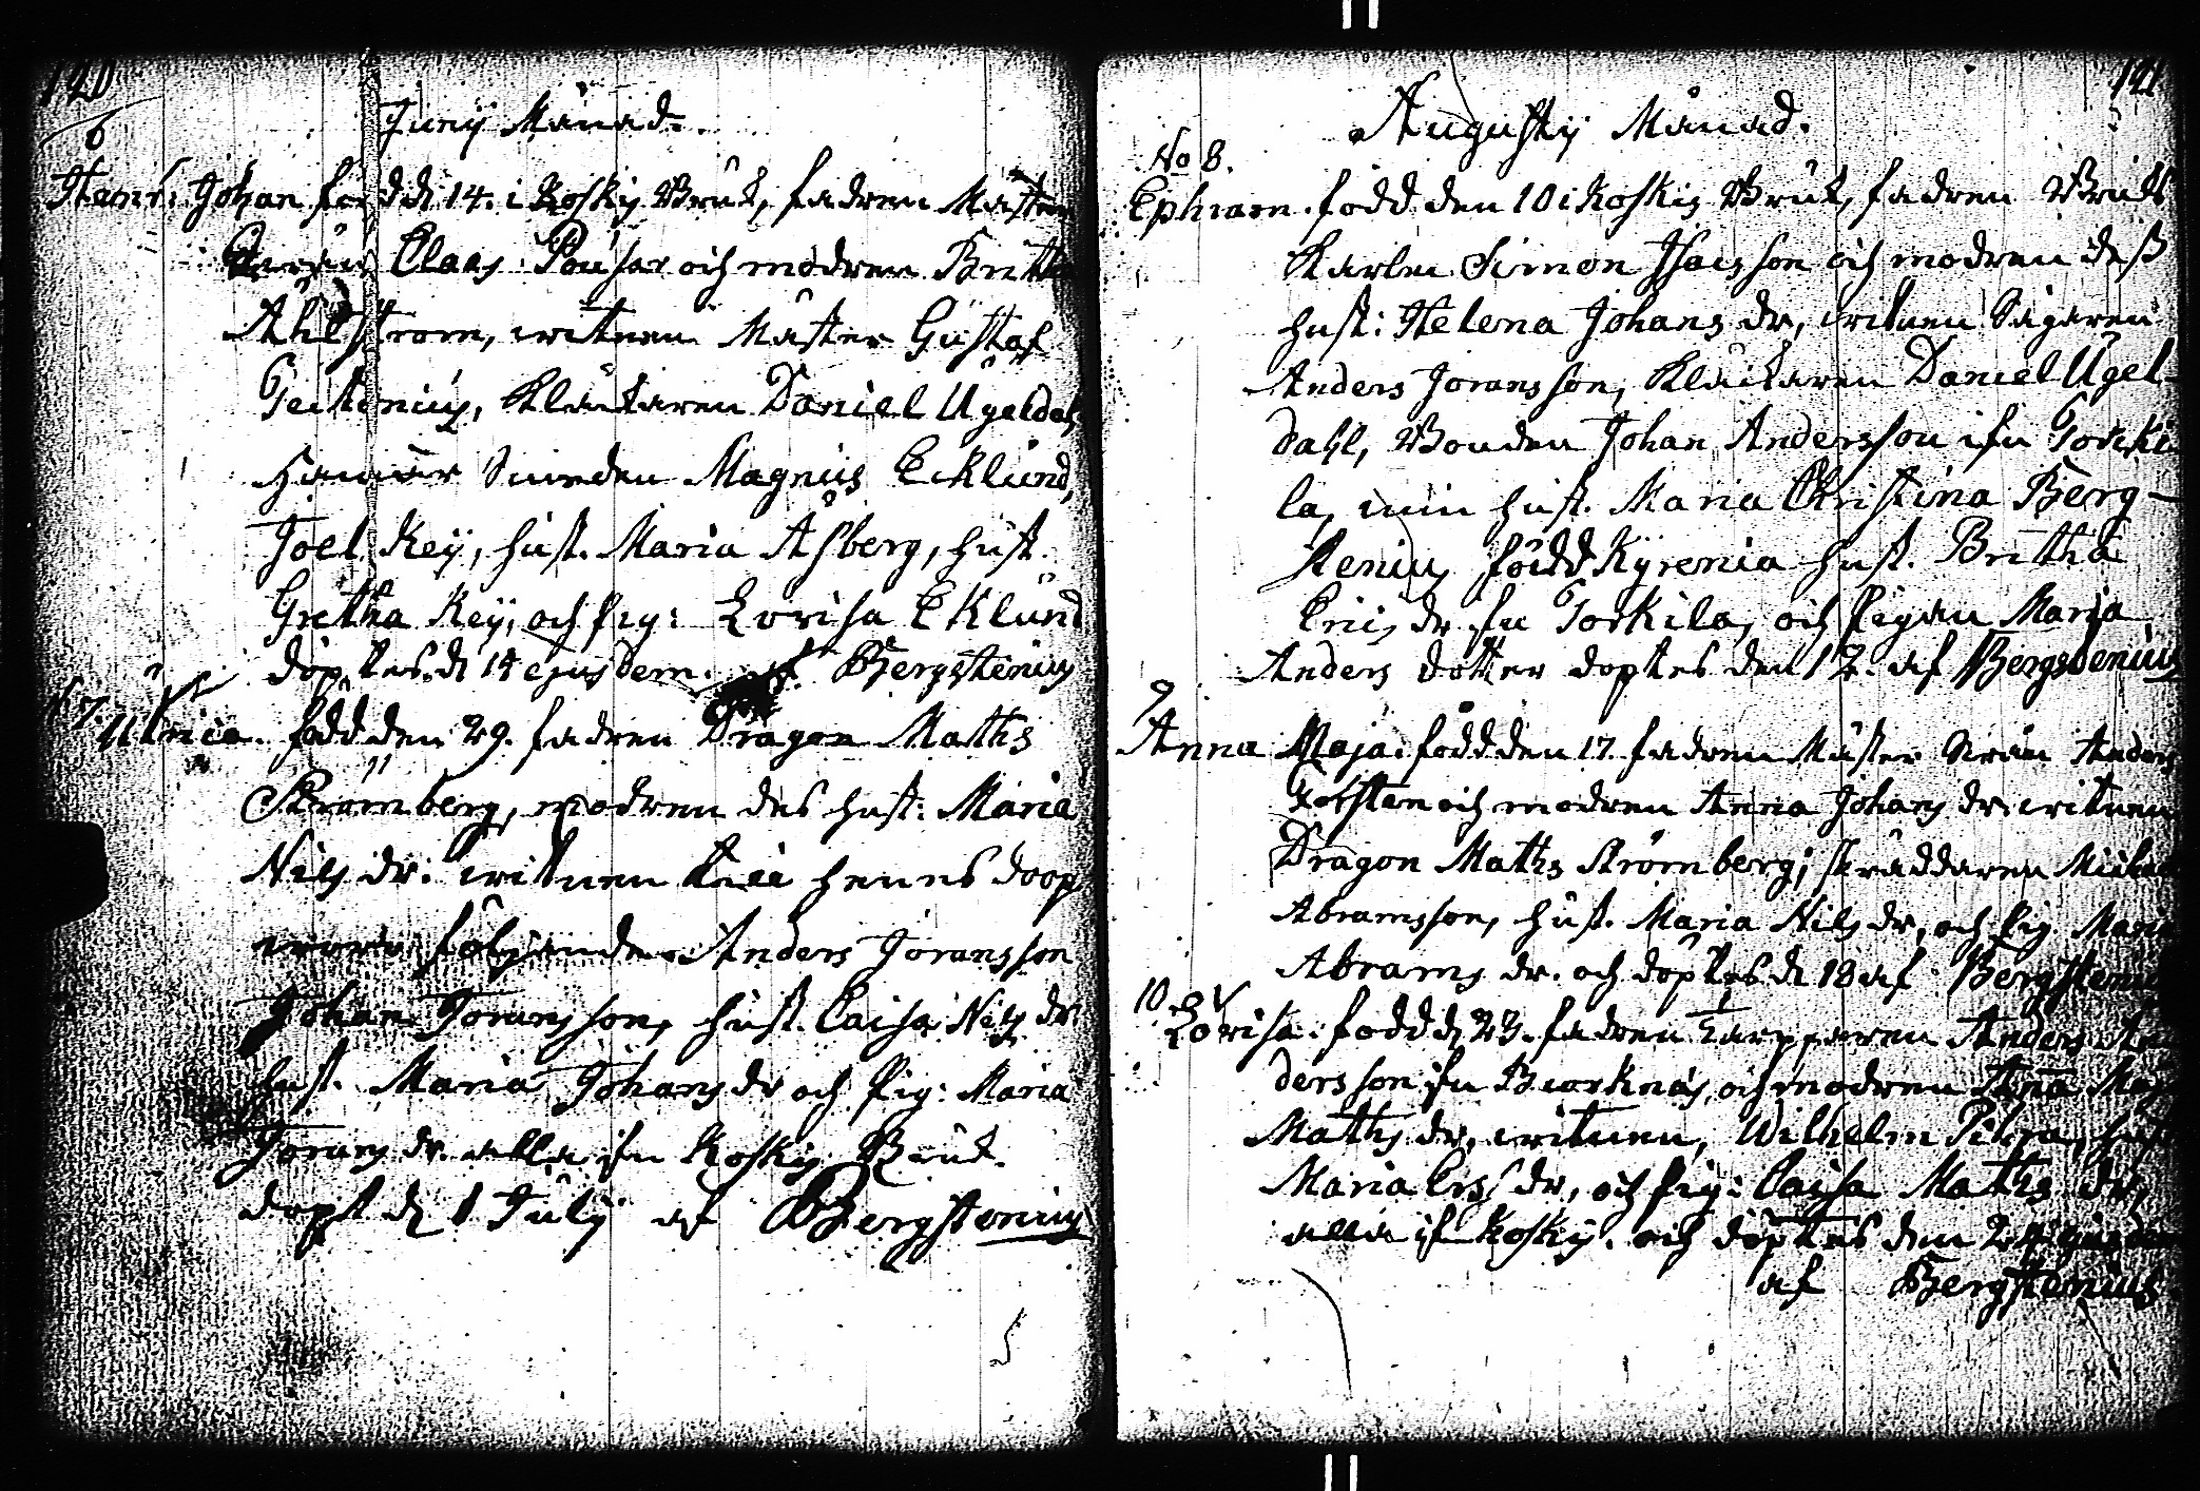 120
Junÿ Månad.
6
Henr: Johan född d 14. i Koskis Bruk, fadren Mäster
Claas Pousar och modren Britta
Ahlström, witnen Mäster Gustaf
Geitonius, Klåckaren Daniel Ugeldahl
Hammar Smeden Magnus Ecklund,
Joel Keÿ, hust. Maria Asberg, hust.
Gretha Keÿ, och pig: Lovisa Eklund
döptes d 14 ejusdem. af Bergstenius
N 7.
Ulrica. född den 29. fadren Dragon Maths
Strömberg, modren des hust: Maria
Nils dr: witnen till hennes doop
woro följande Anders Joransson
Johan Joransson, hust. Caisa Nils dr
hust. Maria Johans dr och pig: Maria
Jorans dr. alla ifrn Koskis Bruk.
döpt d 1 Julÿ af Bergstenius
121
Augustÿ Månad.
No 8.
Ephraim. född den 10 i Koskis Bruk, fadren Bruks
Karlen Simon Isacsson och modren dess
hust: Helena Johans dr, witnen Sågaren
Anders Joransson, Klåckaren Daniel Ugel-
dahl, Bonden Johan Andersson ifrn Torcki
la, min hust. Maria Christina Berg-
stenius född Kyrenia hust. Britha
Erics dr ifrn Torkila, och pigan Maria
Anders dotter döptes den 12. af Bergstenius
9
Anna Maja. född den 17. fadren Mäster Anders
Torsten och modren Anna Johans dr. witnen
Dragon Maths Strömberg, skräddaren Michel
Abramsson, hust. Maria Nils dr, och pig. Maria
Abrams dr. och döptes d 18 af Bergstenius
10.
Lovisa. född d 23. fadren Torpparen Anders An
dersson ifrn Biorknäs, och modren Anna Maja
Maths dr, witnen, Wilhelm Pihra, hust
Maria Ers dr, och pig: Caisa Maths dr,
alla ifrn Koskis. och döptes den 24 ejusdem
af Bergstenius